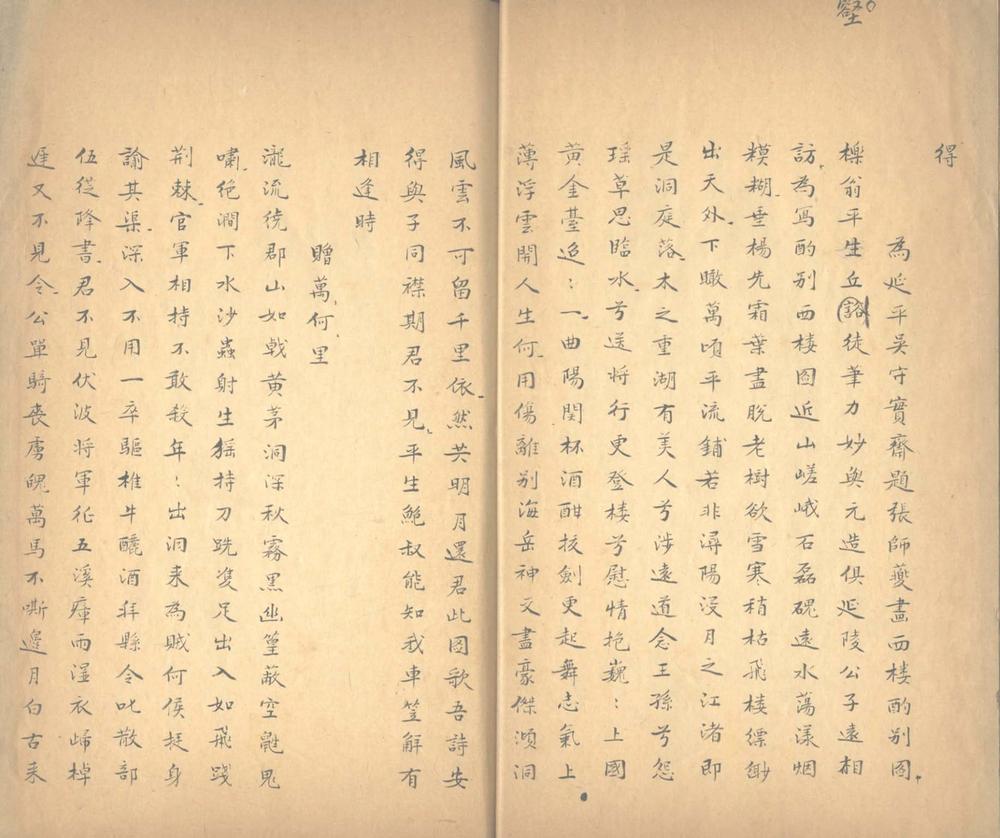 壑
得
為延平吳守實齋題張師夔畫西楼酌别圖
櫟翁平生丘谿徒筆力妙與元造俱延陵公子遠相
訪為寫酌别西楼圖近山嵯峨石磊磈遠水蕩漾烟
糢糊垂楊先霜葉盡脱老樹欲雪寒稍枯飛楼縹緲
出天外下瞰萬頃平流鋪若非潯陽浸月之江渚即
是洞庭落木之重湖有美人兮涉遠道念王孫兮怨
瑶草思臨水兮送將行更登楼兮慰情抱巍〻上國
黄金臺迢〻一曲陽関杯酒酣拔劍更起舞志氣上
薄浮雲開人生何用傷離别海岳神交盡豪傑澒洞
風雲不可留千里依然共明月還君此圖歌吾詩安
得與子同襟期君不見平生鮑叔能知我車笠解有
相逢時
贈萬何里
瀧流繞郡山如戟黄茅洞深秋霧黑幽篁蔽空鼪鬼
嘯絶澗下水沙蟲射生猺持刀跣雙足出入如飛踐
荆棘官軍相持不敢殺年〻出洞来為賊何侯挺身
諭其渠深入不用一卒驅椎牛釃酒拜縣令叱散部
伍從降書君不見伏波將軍征五溪瘴雨溼衣歸棹
遅又不見令公單騎喪虜魄萬馬不嘶邊月白古来